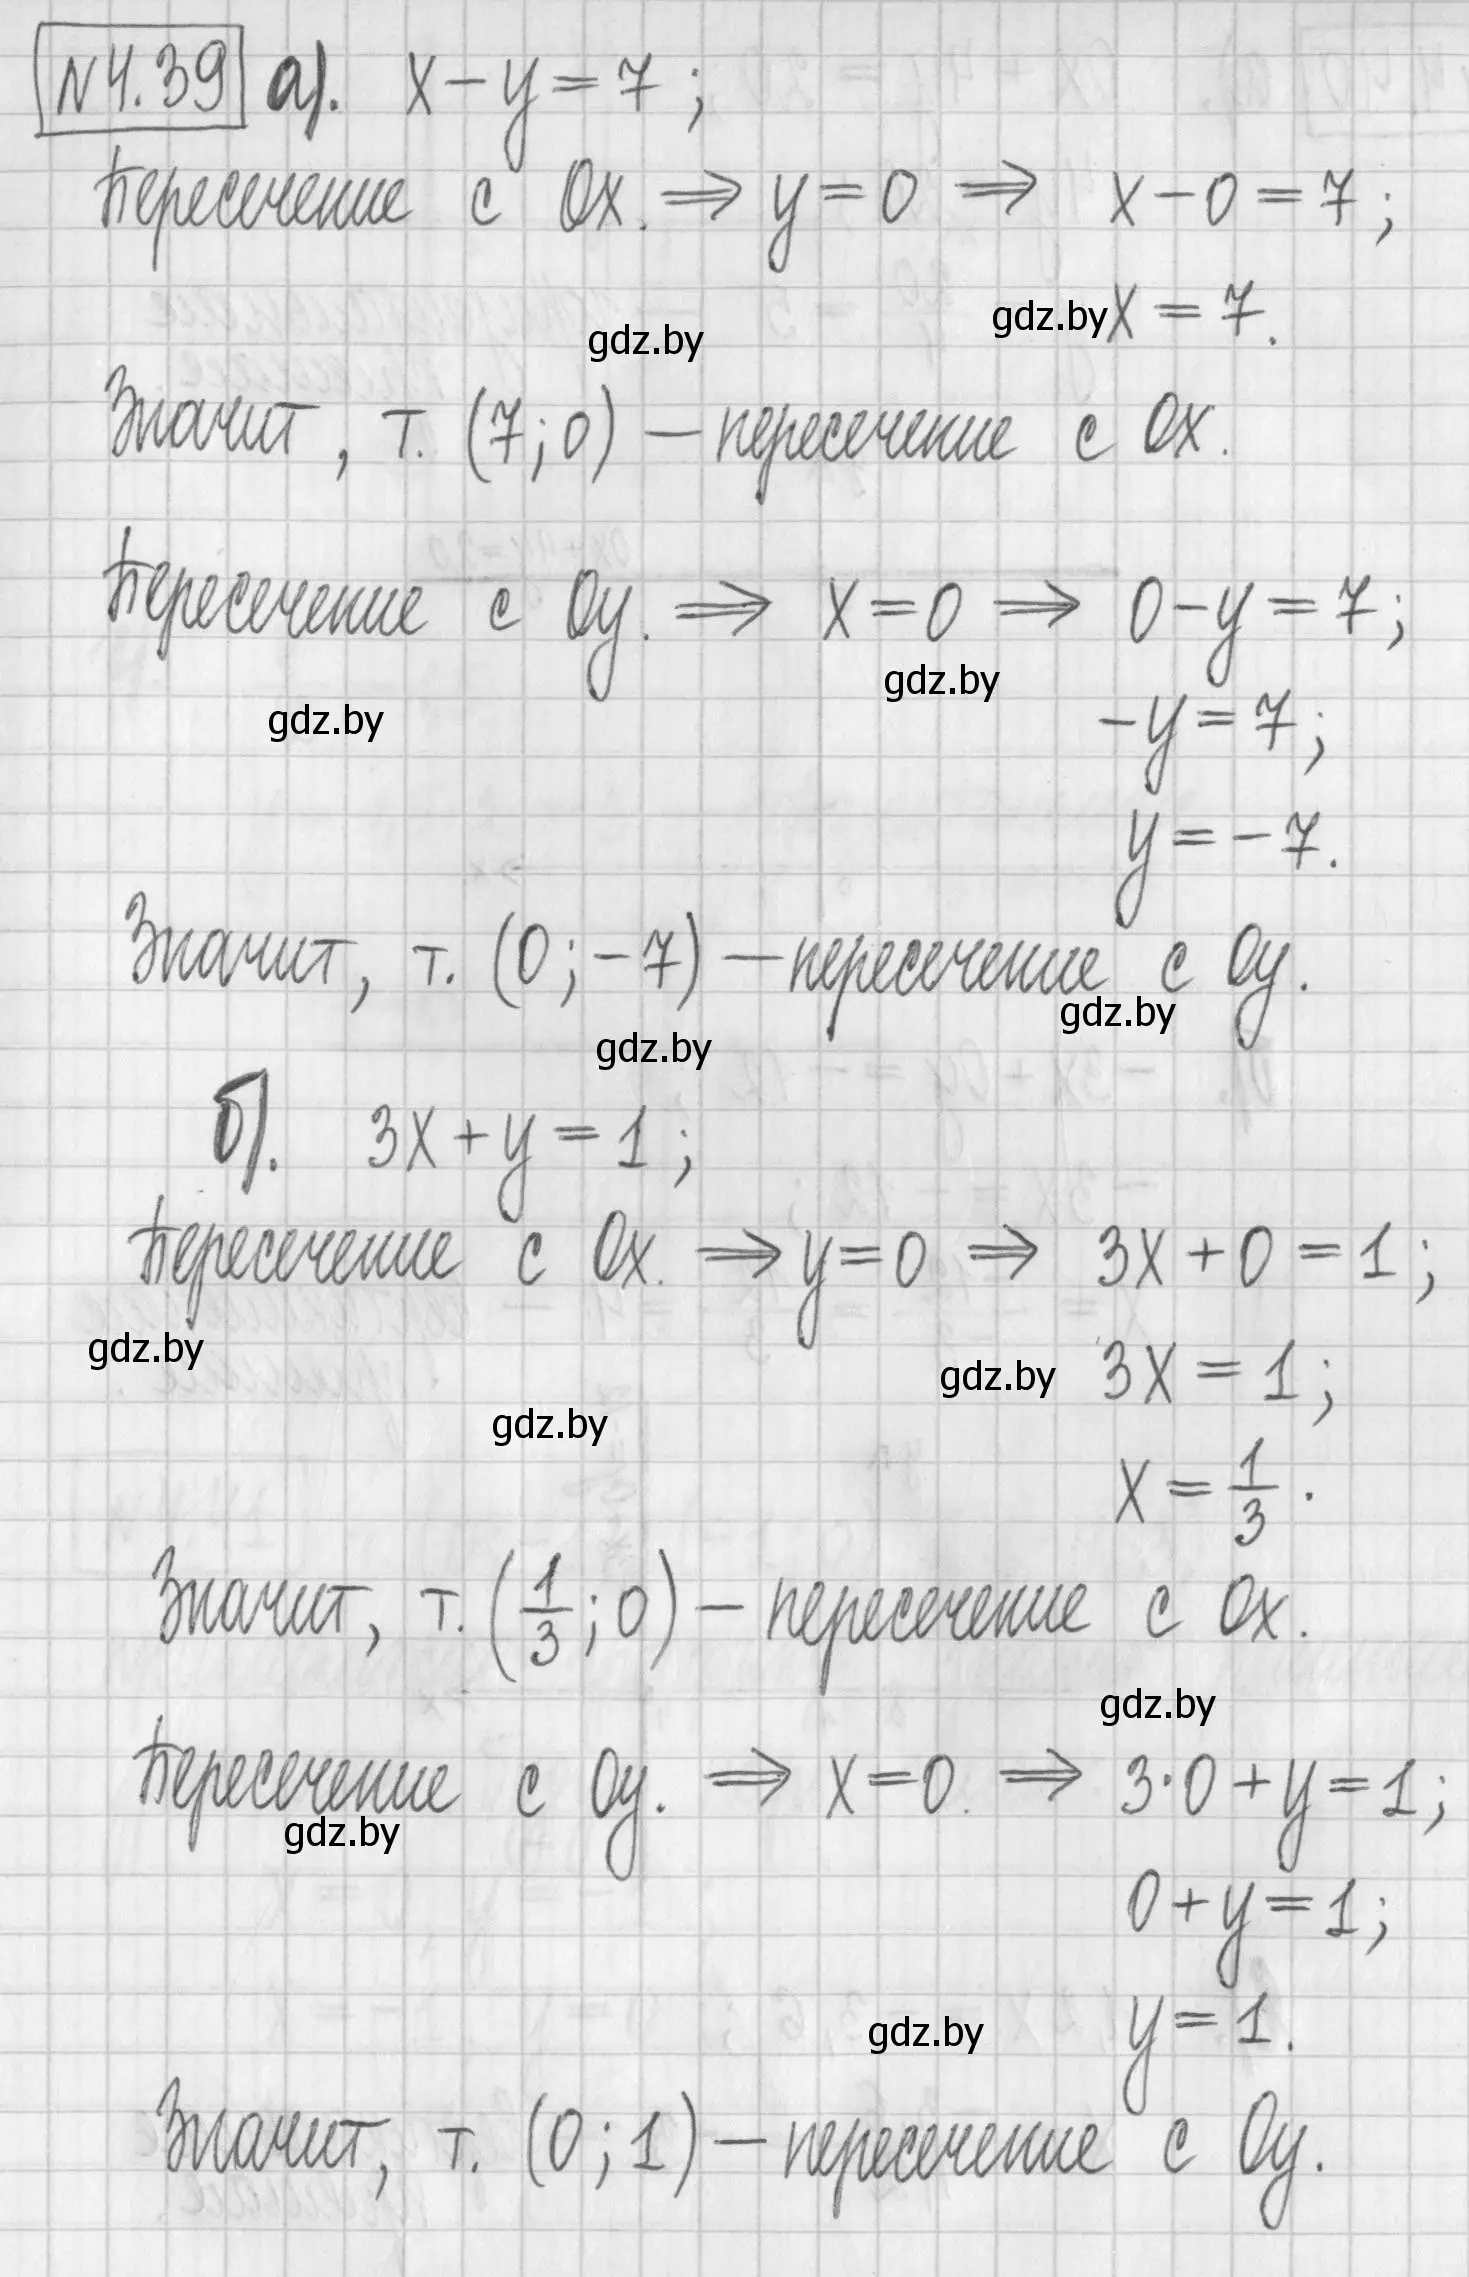 №4.39 а). x − y = 7;
Пересечение с Ox. ⇒ y = 0 ⇒ x − 0 = 7;
gdz.by x = 7.
gdz.by
Значит, т. (7; 0) — пересечение с Ox.
Пересечение с Oy. ⇒ x = 0 ⇒ 0 − y = 7;
gdz.by
gdz.by −y = 7;
y = −7.
Значит, т. (0; −7) — пересечение с Oy.
gdz.by
gdz.by
б). 3x + y = 1;
Пересечение с Ox. ⇒ y = 0 ⇒ 3x + 0 = 1;
gdz.by
gdz.by 3x = 1;
gdz.by
x = 1/3.
Значит, т. (1/3; 0) — пересечение с Ox.
gdz.by
Пересечение с Oy. ⇒ x = 0. ⇒ 3·0 + y = 1;
gdz.by
0 + y = 1;
gdz.by y = 1.
Значит, т. (0; 1) — пересечение с Oy.